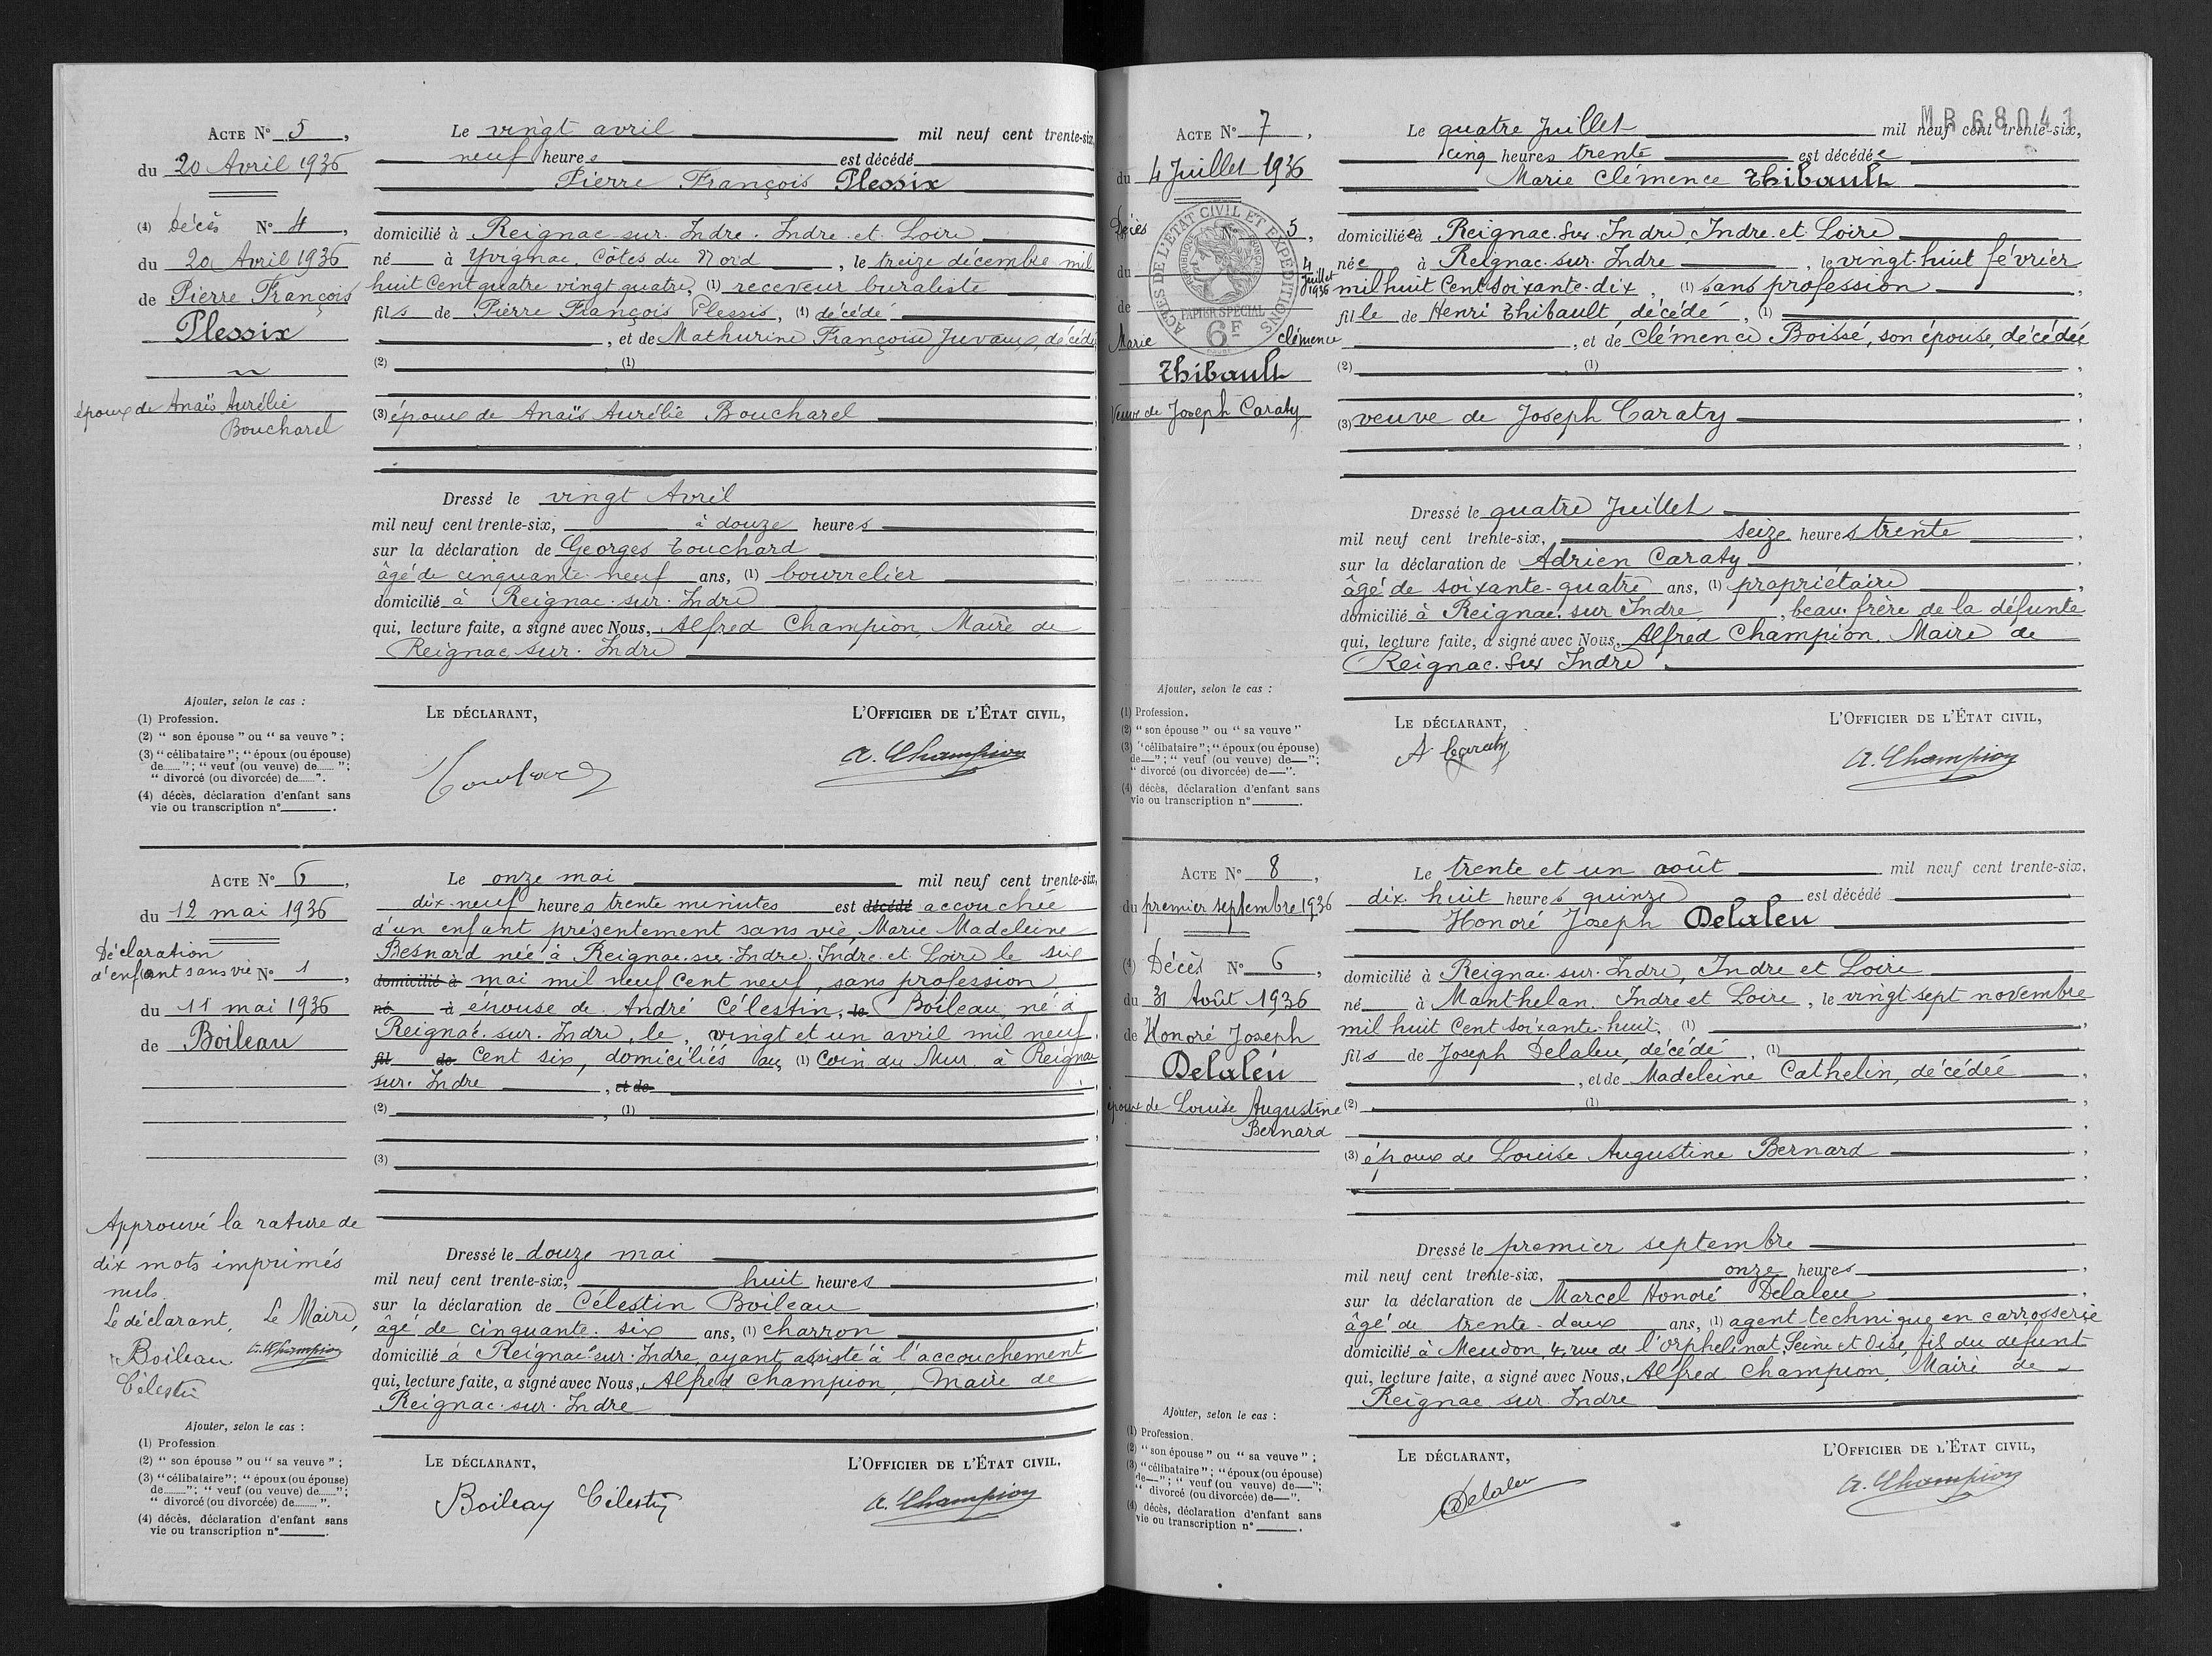 ACTE N° 5,
du 20 Avril 1936
(4) Décès N° 4,
du 20 Avril 1936
de Pierre François
Plessix
époux de Anaïs Aurélie
Boucharel
Le vingt avril mil neuf cent trente-six,
neuf heures est décédé
Pierre François Plessix
domicilié à Reignac-sur-Indre. Indre et Loire
né à Yvignac, Côtes du Nord, le treize décembre mil
huit Cent quatre vingt quatre, (1) receveur buraliste
fils de Pierre François Plessis, (1) décédé
, et de Mathurine Françoise Juvaux, décédée
(2) , (1)
(3) époux de Anaïs Aurélie Boucharel
Dressé le vingt Avril
mil neuf cent trente-six, à douze heures
sur la déclaration de Georges Touchard
âgé de cinquante-neuf ans, (1) bourrelier
domicilié à Reignac-sur-Indre
qui, lecture faite, a signé avec Nous, Alfred Champion, Maire de
Reignac sur-Indre
Ajouter, selon le cas :
(1) Profession.
(2) “ son épouse ” ou “ sa veuve ” ;
(3) “ célibataire ”; “ époux (ou épouse)
de...... ” ; “ veuf (ou veuve) de...... ” ;
“ divorcé (ou divorcée) de...... ”.
(4) décès, déclaration d'enfant sans
vie ou transcription n° .
LE DÉCLARANT,
L'OFFICIER DE L'ÉTAT CIVIL,
Touchard
A. Champion
ACTE N° 6,
du 12 mai 1936
Déclaration
d'enfant sans vie N° 1,
du 11 mai 1936
de Boileau
Le onze mai mil neuf cent trente-six,
dix-neuf heures trente minutes est décédé accouchée
d'un enfant présentement sans vie, Marie Madeleine
Besnard née à Reignac-sur-Indre. Indre et Loire le six
domicilié à mai mil neuf Cent neuf, sans profession,
né à épouse de André Célestin, le Boileau, né à
Reignac-sur-Indre, le, vingt et un avril mil neuf
fil de Cent six, domiciliés au, (1) Coin du Mur à Reignac
sur-Indre , et de
(2) , (1)
(3)
Approuvé la rature de
dix mots imprimés
nuls.
Le déclarant, Le Maire,
Boileau A. Champion
Célestin
Dressé le douze mai
mil neuf cent trente-six, huit heures
sur la déclaration de Célestin Boileau
âgé de cinquante-six ans, (1) charron
domicilié à Reignac-sur-Indre, ayant assisté à l'accouchement
qui, lecture faite, a signé avec Nous, Alfred Champion, Maire de
Reignac-sur-Indre
Ajouter, selon le cas :
(1) Profession
(2) “ son épouse ” ou “ sa veuve ” ;
(3) “ célibataire ” ; “ époux (ou épouse)
de...... ” ; “ veuf (ou veuve) de...... ” ;
“ divorcé (ou divorcée) de...... ”.
(4) décès, déclaration d'enfant sans
vie ou transcription n° .
LE DÉCLARANT,
L'OFFICIER DE L'ÉTAT CIVIL.
Boileau Célestin
A. Champion
MR 68041
ACTE N° 7,
du 4 Juillet 1936
Décès N° 5,
du 4 Juillet 1936
de
Marie Clémence
Thibault
Veuve de Joseph Caraty
ACTES DE L'ÉTAT CIVIL ET EXPÉDITIONS
RÉPUBLIQUE FRANÇAISE
PAPIER SPÉCIAL
6F
Le quatre Juillet mil neuf cent trente-six,
cinq heures trente est décédée
Marie Clémence Thibault
domiciliée à Reignac-Sur-Indre, Indre-et-Loire
née à Reignac-sur-Indre , le vingt-huit février
mil huit Cent soixante-dix, (1) sans profession,
fille de Henri Thibault, décédé, (1)
, et de Clémence Boissé, son épouse, décédée
(2) , (1)
(3) veuve de Joseph Caraty
Dressé le quatre Juillet
mil neuf cent trente-six, seize heures trente
sur la déclaration de Adrien Caraty
âgé de soixante-quatre ans, (1) propriétaire
domicilié à Reignac-sur Indre, beau-frère de la défunte
qui, lecture faite, a signé avec Nous, Alfred Champion, Maire de
Reignac-Sur Indre.
Ajouter, selon le cas :
(1) Profession.
(2) “ son épouse ” ou “ sa veuve ”
(3) “ célibataire ” ; “ époux (ou épouse)
de— ” ; “ veuf (ou veuve) de— ” ;
“ divorcé (ou divorcée) de— ”.
(4) décès, déclaration d'enfant sans
vie ou transcription n° .
LE DÉCLARANT,
L'OFFICIER DE L'ÉTAT CIVIL,
A Caraty
A. Champion
ACTE N° 8,
du premier septembre 1936
(4) Décès N° 6,
du 31 Août 1936
de Honoré Joseph
Delaleu
époux de Louise Augustine
Bernard
Le trente et un août mil neuf cent trente-six.
dix-huit heures quinze est décédé
Honoré Joseph Delaleu
domicilié à Reignac-sur-Indre, Indre et Loire
né à Manthelan, Indre et Loire, le vingt sept novembre
mil huit Cent soixante-huit, (1)
fils de Joseph Delaleu, décédé, (1)
, et de Madeleine Cathelin, décédée
(2) (1)
(3) époux de Louise Augustine Bernard
Dressé le premier septembre
mil neuf cent trente-six, onze heures
sur la déclaration de Marcel Honoré Delaleu
âgé de trente-deux ans, (1) agent technique en carrosserie
domicilié à Meudon, 4, rue de l'orphelinat, Seine et Oise, fils du défunt
qui, lecture faite, a signé avec Nous, Alfred Champion, Maire de
Reignac sur Indre
Ajouter, selon le cas :
(1) Profession.
(2) “ son épouse ” ou “ sa veuve ” ;
(3) “ célibataire ” ; “ époux (ou épouse)
de— ” ; “ veuf (ou veuve) de— ” ;
“ divorcé (ou divorcée) de— ”.
(4) décès, déclaration d'enfant sans
vie ou transcription n° .
LE DÉCLARANT,
L'OFFICIER DE L'ÉTAT CIVIL,
Delaleu
A. Champion